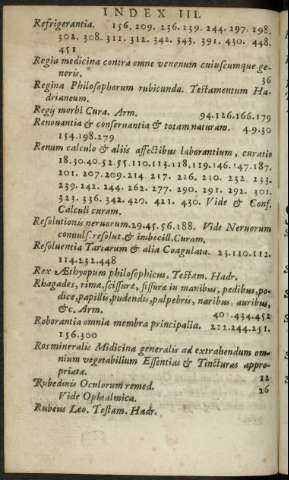 INDEX III.
Refrigerantia. 156. 209. 236. 239. 244. 297. 298.
302. 308. 311. 312. 342. 343. 391. 430. 448.
451
Regia medicina contra omne venenum cuiuscumque ge-
neris. 36
Regina Philosophorum rubicunda. Testamentum Ha-
drianeum.
Regij morbi Cura. Arm. 94.126.166.179
Renouantia & conseruantia & totam naturam. 4.9.30
154.198.279
Renum calculo & aliis affectibus laborantium, curatio
18.30.40.52.55.110.113.118.119.146.147.187.
201. 207. 209. 214. 217. 216. 210. 232. 233.
239. 242. 244. 262. 277. 290. 291. 292. 301.
323. 336. 342. 420. 421. 430. Vide & Conf.
Calculi curam.
Resolutionis neruorum. 29.45.56.188. Vide Neruorum
conuuls. resolut. & imbecill. Curam.
Resoluentia Tartarum & alia Coagulata. 23.110.112.
114.232.448
Rex Æthyopum philosophicus. Testam. Hadr.
Rhagades, rima, scissura, fissura in manibus, pedibus, po-
dice, papillis, pudendis, palpebris, naribus auribus,
&c. Arm. 401.434.452
Roborantia omnia membra principalia. 212.244.251.
156.300
Ros mineralis Midicina generalis ad extrahendum om-
nium vegetabilium Essentias & Tincturas appro-
priata. 12
Rubedinis Oculorum remed. 26
Vide Ophtalmica.
Rubeus Leo. Testam. Hadr.